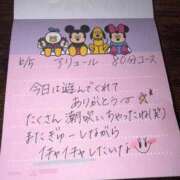 6/5 アリュール 80分コース
今日は遊んでくれて
ありがとう
たくさん潮吹いちゃったね(笑)
またぎゅーしながら
イチャイチャしたいな